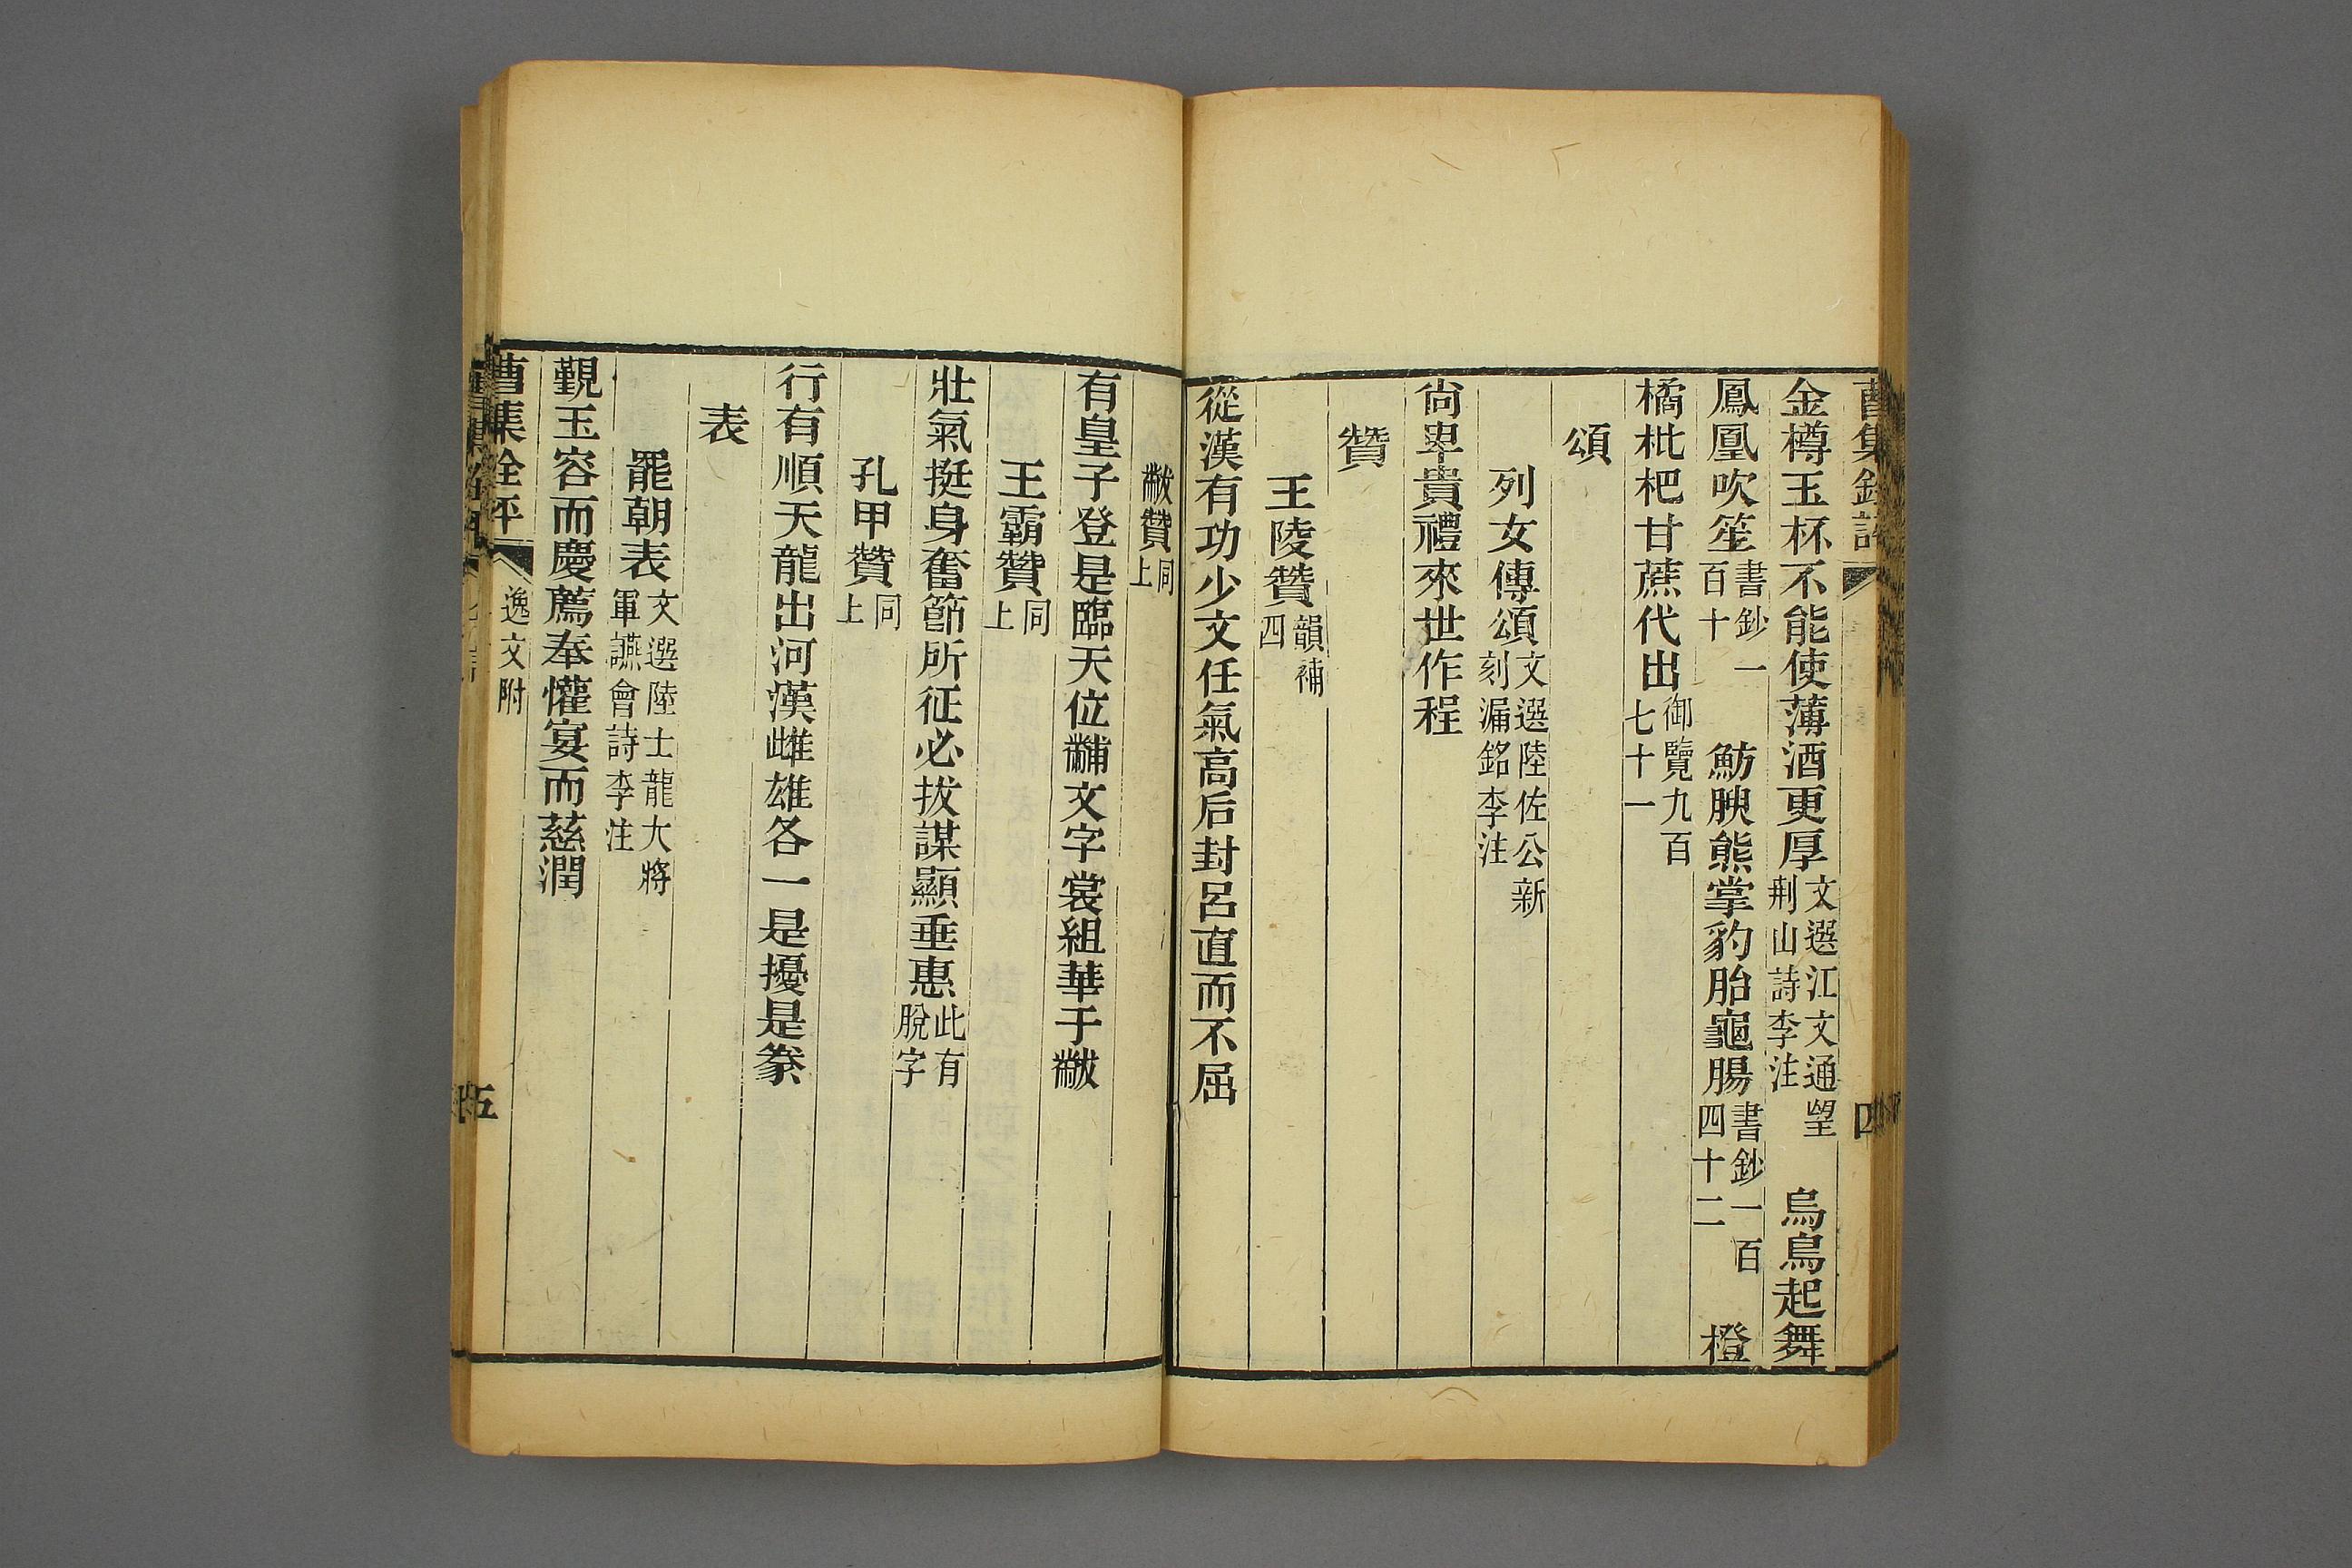 曹集銓評
四
金樽玉杯不能使薄酒更厚文選江文通望荆山詩李注 烏鳥起舞
鳳凰吹笙書鈔一百十 魴腴熊掌豹胎龜腸書鈔一百四十二 橙
橘枇杷甘蔗代出御覽九百七十一
頌
列女傳頌文選陸佐公新刻漏銘李注
尙卑貴禮來世作程
贊
王陵贊韻補四
從漢有功少文任氣高后封呂直而不屈
黻贊同上
有皇子登是臨天位黼文字裳組華于黻
王霸贊同上
壯氣挺身奮節所征必拔謀顯垂惠此有脫字
孔甲贊同上
行有順天龍出河漢雌雄各一是擾是豢
表
罷朝表文選陸士龍大將軍讌會詩李注
覲玉容而慶薦奉懽宴而慈潤
曹集銓評
逸文附
五